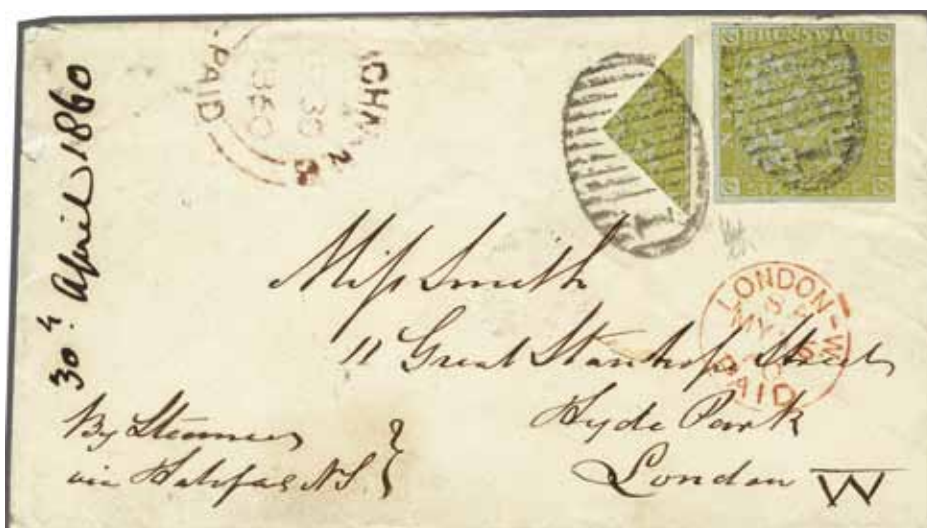 30th April 1860
PAID
30
1860
BRUNSWICK
SIX PENCE
Miss Smith
11 Great Stanhope Street
Hyde Park
London W
By Steamer
via Halifax N.S.
LONDON-W
MY
PAID